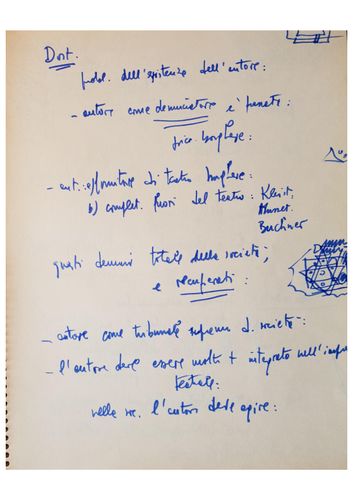 Dort.
probl. dell'esistenza dell'autore:
- autore come denunciatore e
borghese:
- aut. di teatro borghese:
b) complet. fuori del teatro: Kleist,
Musset
Büchner
questi denunci totale della società,
e recuperati:
- autore come tribunale supremo d. società:
- l'autore deve essere molto + integrato nell'
teatrale:
nelle l'autore deve agire: